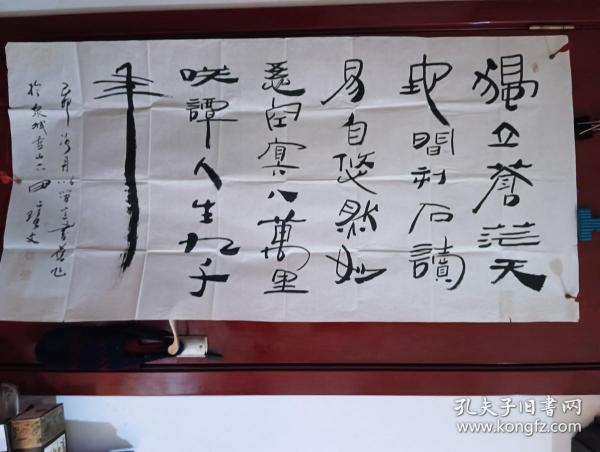 獨立蒼茫天
地間石讀
易自悠然妙
空冥八萬里
咲譚人生九千
年
己卯
於泉城
孔夫子旧书网
www.kongfz.com